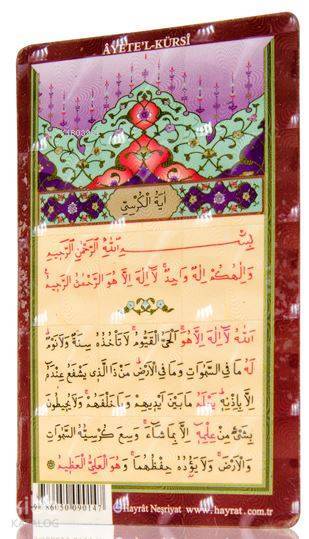 ÂYETE'L-KÜRSÎ
اٰيَةُ الْكُرْسِيِّ
بِسْمِ اللّٰهِ الرَّحْمٰنِ الرَّحِيمِ
وَاِلٰهُكُمْ اِلٰهٌ وَاحِدٌ لَٓا اِلٰهَ اِلَّا هُوَ الرَّحْمٰنُ الرَّحِيمُ
اَللّٰهُ لَٓا اِلٰهَ اِلَّا هُوَ اَلْحَيُّ الْقَيُّومُ لَا تَأْخُذُهُ سِنَةٌ وَلَا نَوْمٌ
لَهُ مَا فِي السَّمٰوَاتِ وَمَا فِي الْاَرْضِ مَنْ ذَا الَّذِي يَشْفَعُ عِنْدَهُٓ
اِلَّا بِاِذْنِهِ يَعْلَمُ مَا بَيْنَ اَيْدِيهِمْ وَمَا خَلْفَهُمْ وَلَا يُحِيطُونَ
بِشَيْءٍ مِنْ عِلْمِهِٓ اِلَّا بِمَا شَٓاءَ وَسِعَ كُرْسِيُّهُ السَّمٰوَاتِ
وَالْاَرْضَ وَلَا يَؤُ۫دُهُ حِفْظُهُمَا وَهُوَ الْعَلِيُّ الْعَظِيمُ
9786050090147
Hayrât Neşriyat
www.hayrat.com.tr
KATALOG